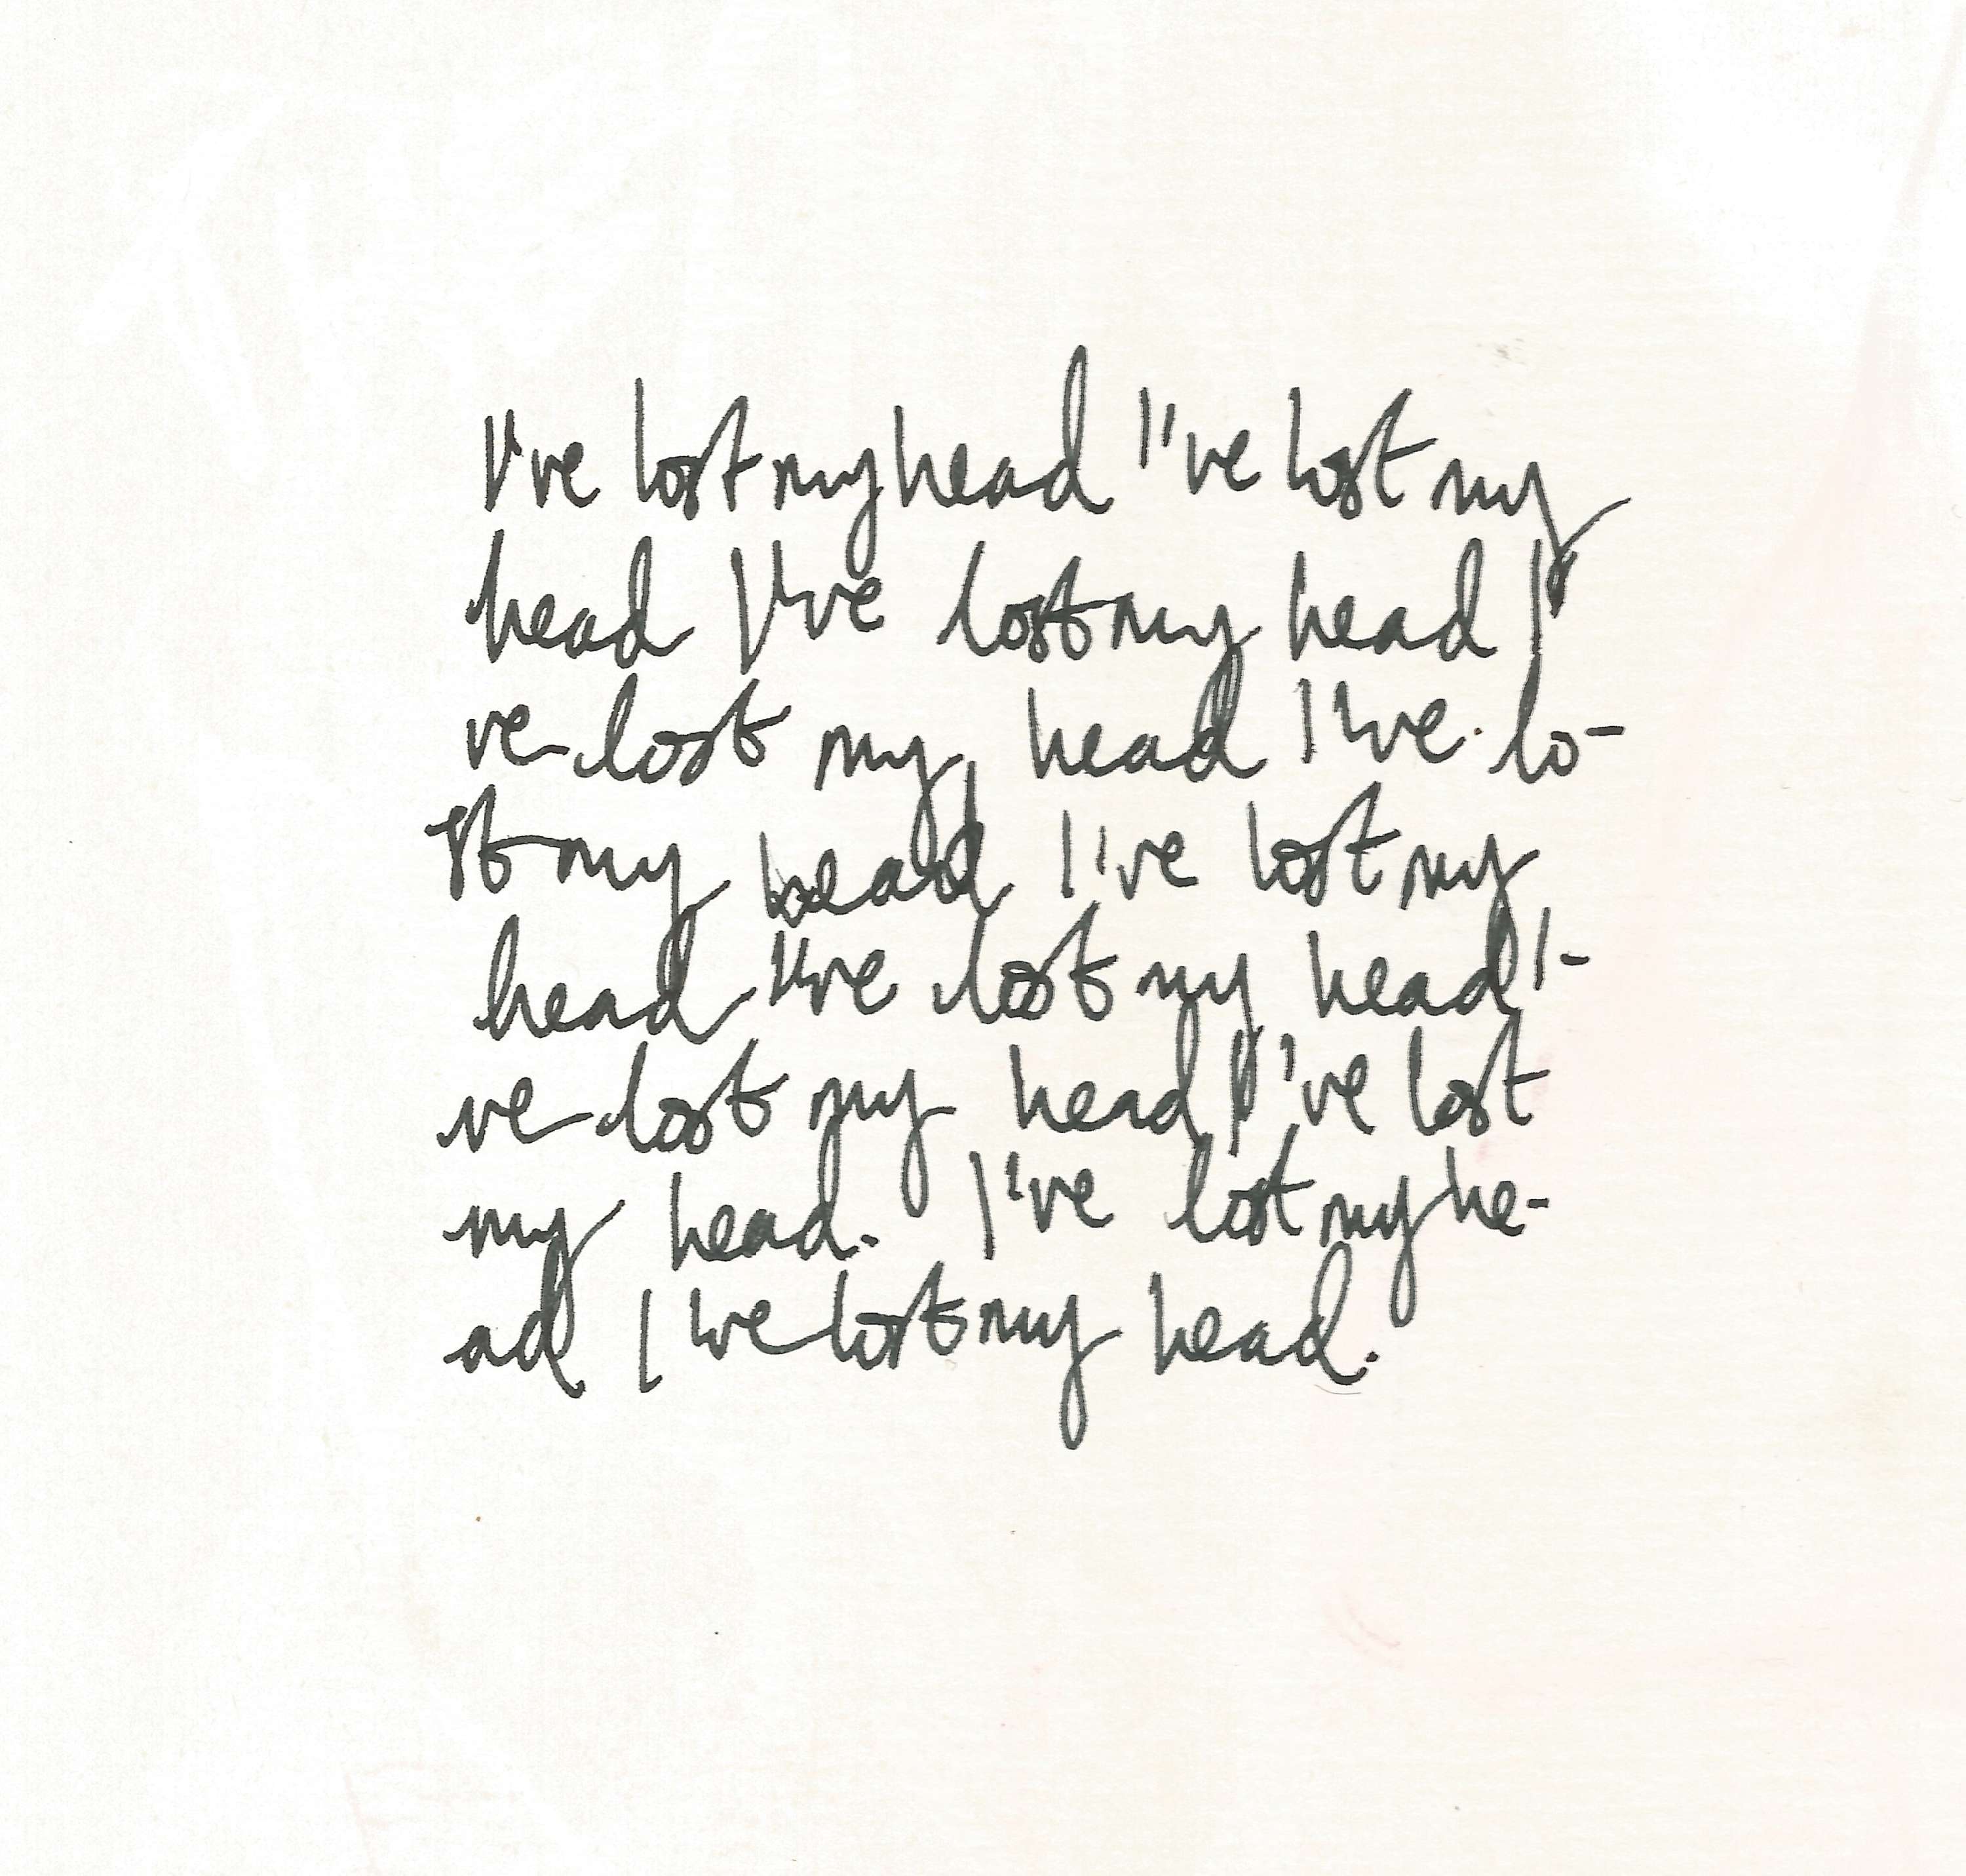 I've lost my head I've lost my
head I've lost my head I'
ve lost my head I've lo-
st my head I've lost my
head I've lost my head I-
ve lost my head I've lost
my head. I've lost my he-
ad I've lost my head.